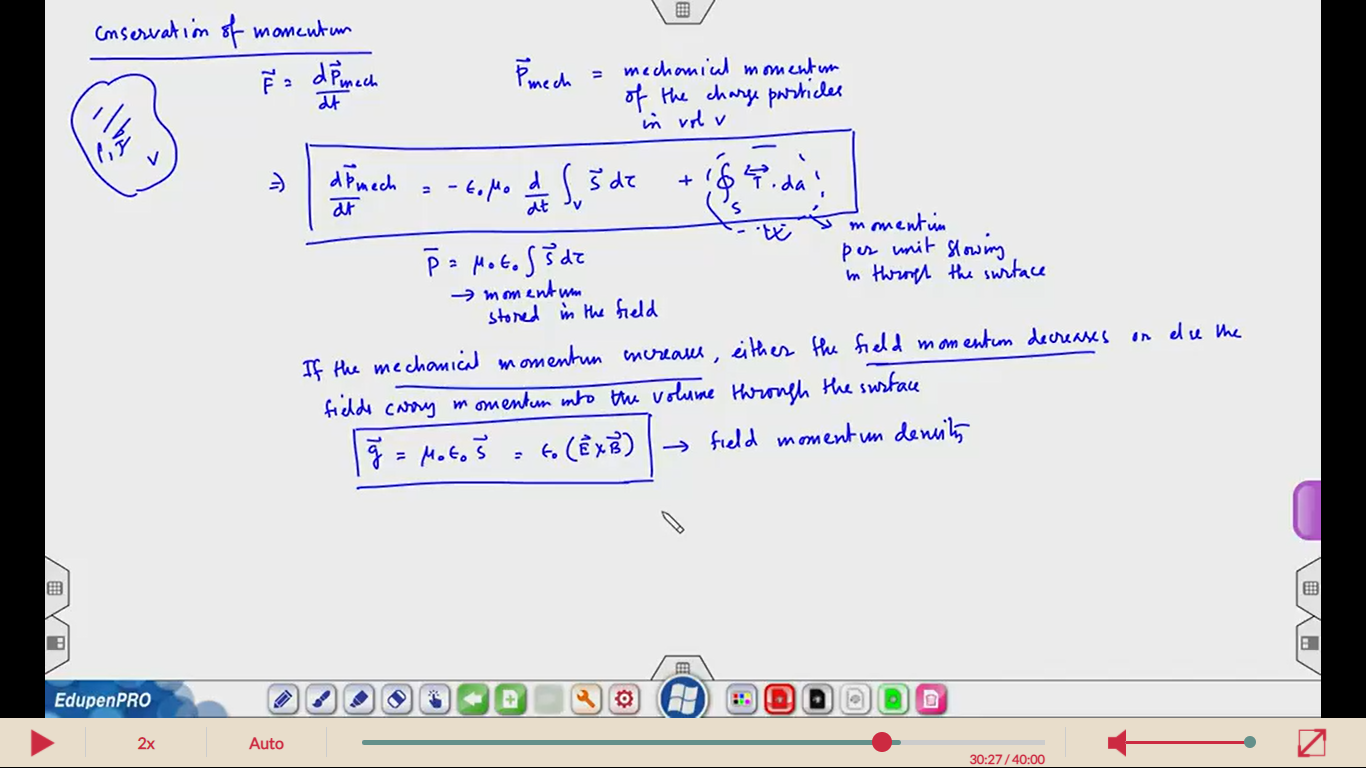 Conservation of momentum
F⃗ = dP⃗mech/dt
P⃗mech = mechanical momentum
of the charge particles
in vol v
ρ, J⃗ V
⇒ dP⃗mech/dt = - ϵ₀μ₀ d/dt ∫v S⃗ dτ + ∮s T⃡ . da
momentum
per unit flowing
in through the surface
P⃗ = μ₀ϵ₀ ∫ S⃗ dτ
→ momentum
stored in the field
If the mechanical momentum increases, either the field momentum decreases or else the
fields carry momentum into the volume through the surface
g⃗ = μ₀ϵ₀ S⃗ = ϵ₀ (E⃗ × B⃗) → field momentum density
EdupenPRO
2x Auto 30:27 / 40:00